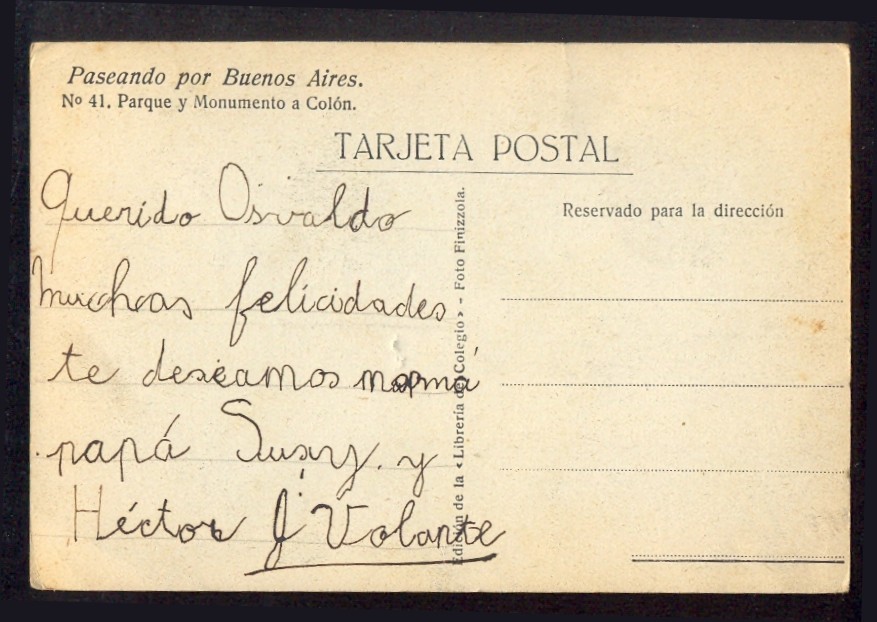 Paseando por Buenos Aires.
Nº 41. Parque y Monumento a Colón.
TARJETA POSTAL
Querido Osvaldo
muchas felicidades
te deseamos mamá
papá Susy. y
Héctor J Volante
Edición de la « Librería del Colegio » - Foto Finizzola.
Reservado para la dirección